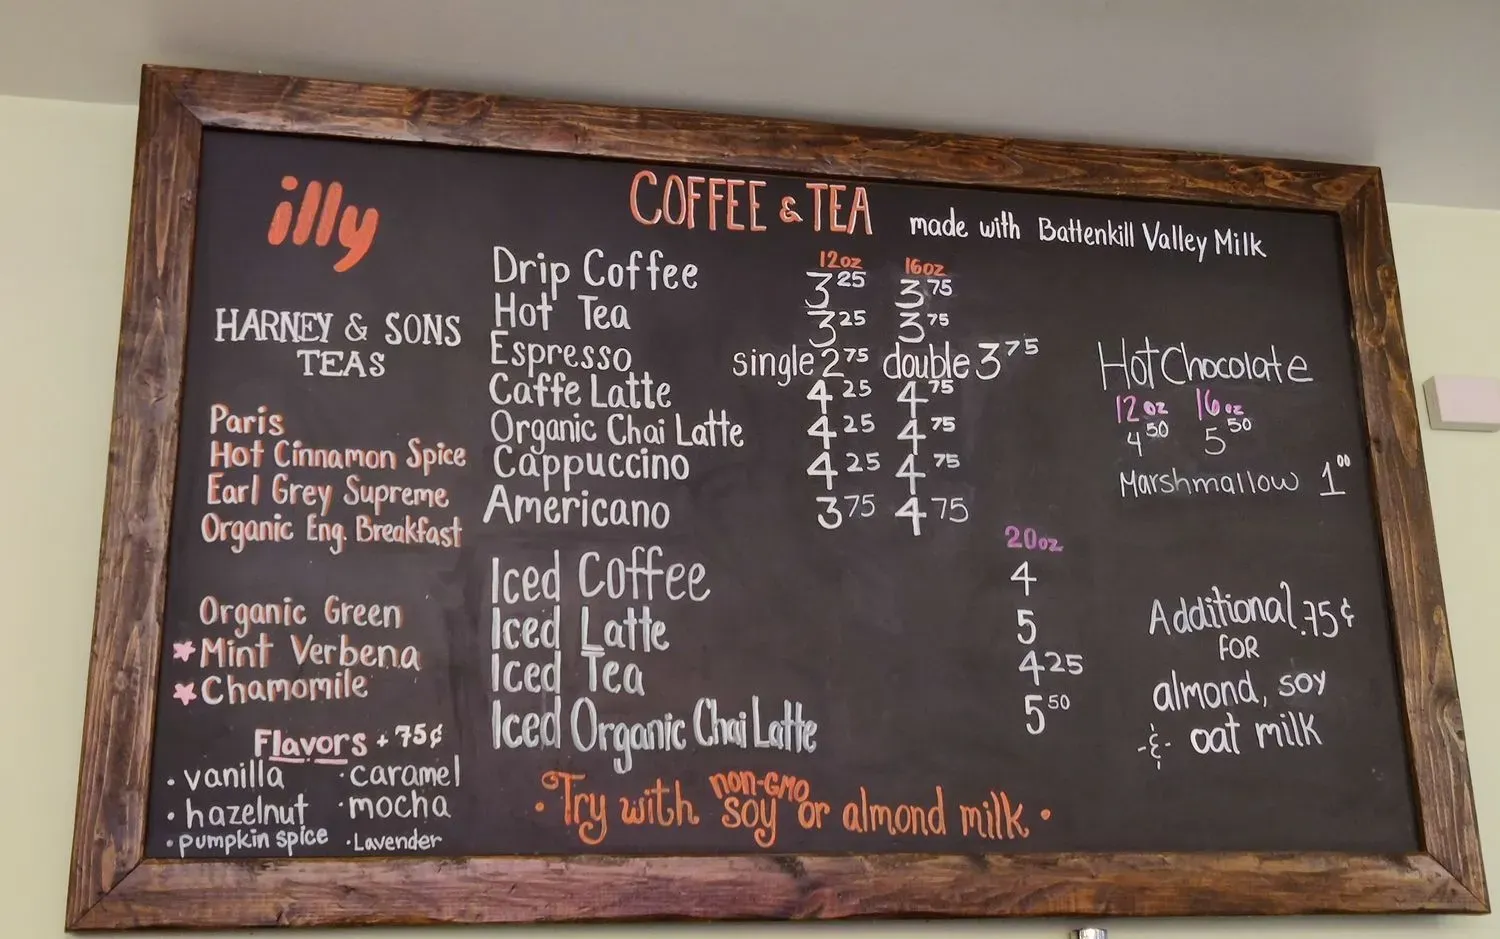 illy
HARNEY & SONS
TEAS
Paris
Hot Cinnamon Spice
Earl Grey Supreme
Organic Eng. Breakfast
Organic Green
Mint Verbena
Chamomile
Flavors + 75¢
· vanilla · caramel
· hazelnut · mocha
· pumpkin spice · Lavender
COFFEE & TEA made with Battenkill Valley Milk
12oz 16oz
Drip Coffee 3 25 3 75
Hot Tea 3 25 3 75
Espresso single 2 75 double 3 75
Caffe Latte 4 25 4 75
Organic Chai Latte 4 25 4 75
Cappuccino 4 25 4 75
Americano 3 75 4 75
20oz
Iced Coffee 4
Iced Latte 5
Iced Tea 4 25
Iced Organic Chai Latte 5 50
· Try with non-GMO soy or almond milk ·
Hot Chocolate
12 oz 16 oz
4 50 5 50
Marshmallow 1 00
Additional .75¢
FOR
almond, soy
& oat milk